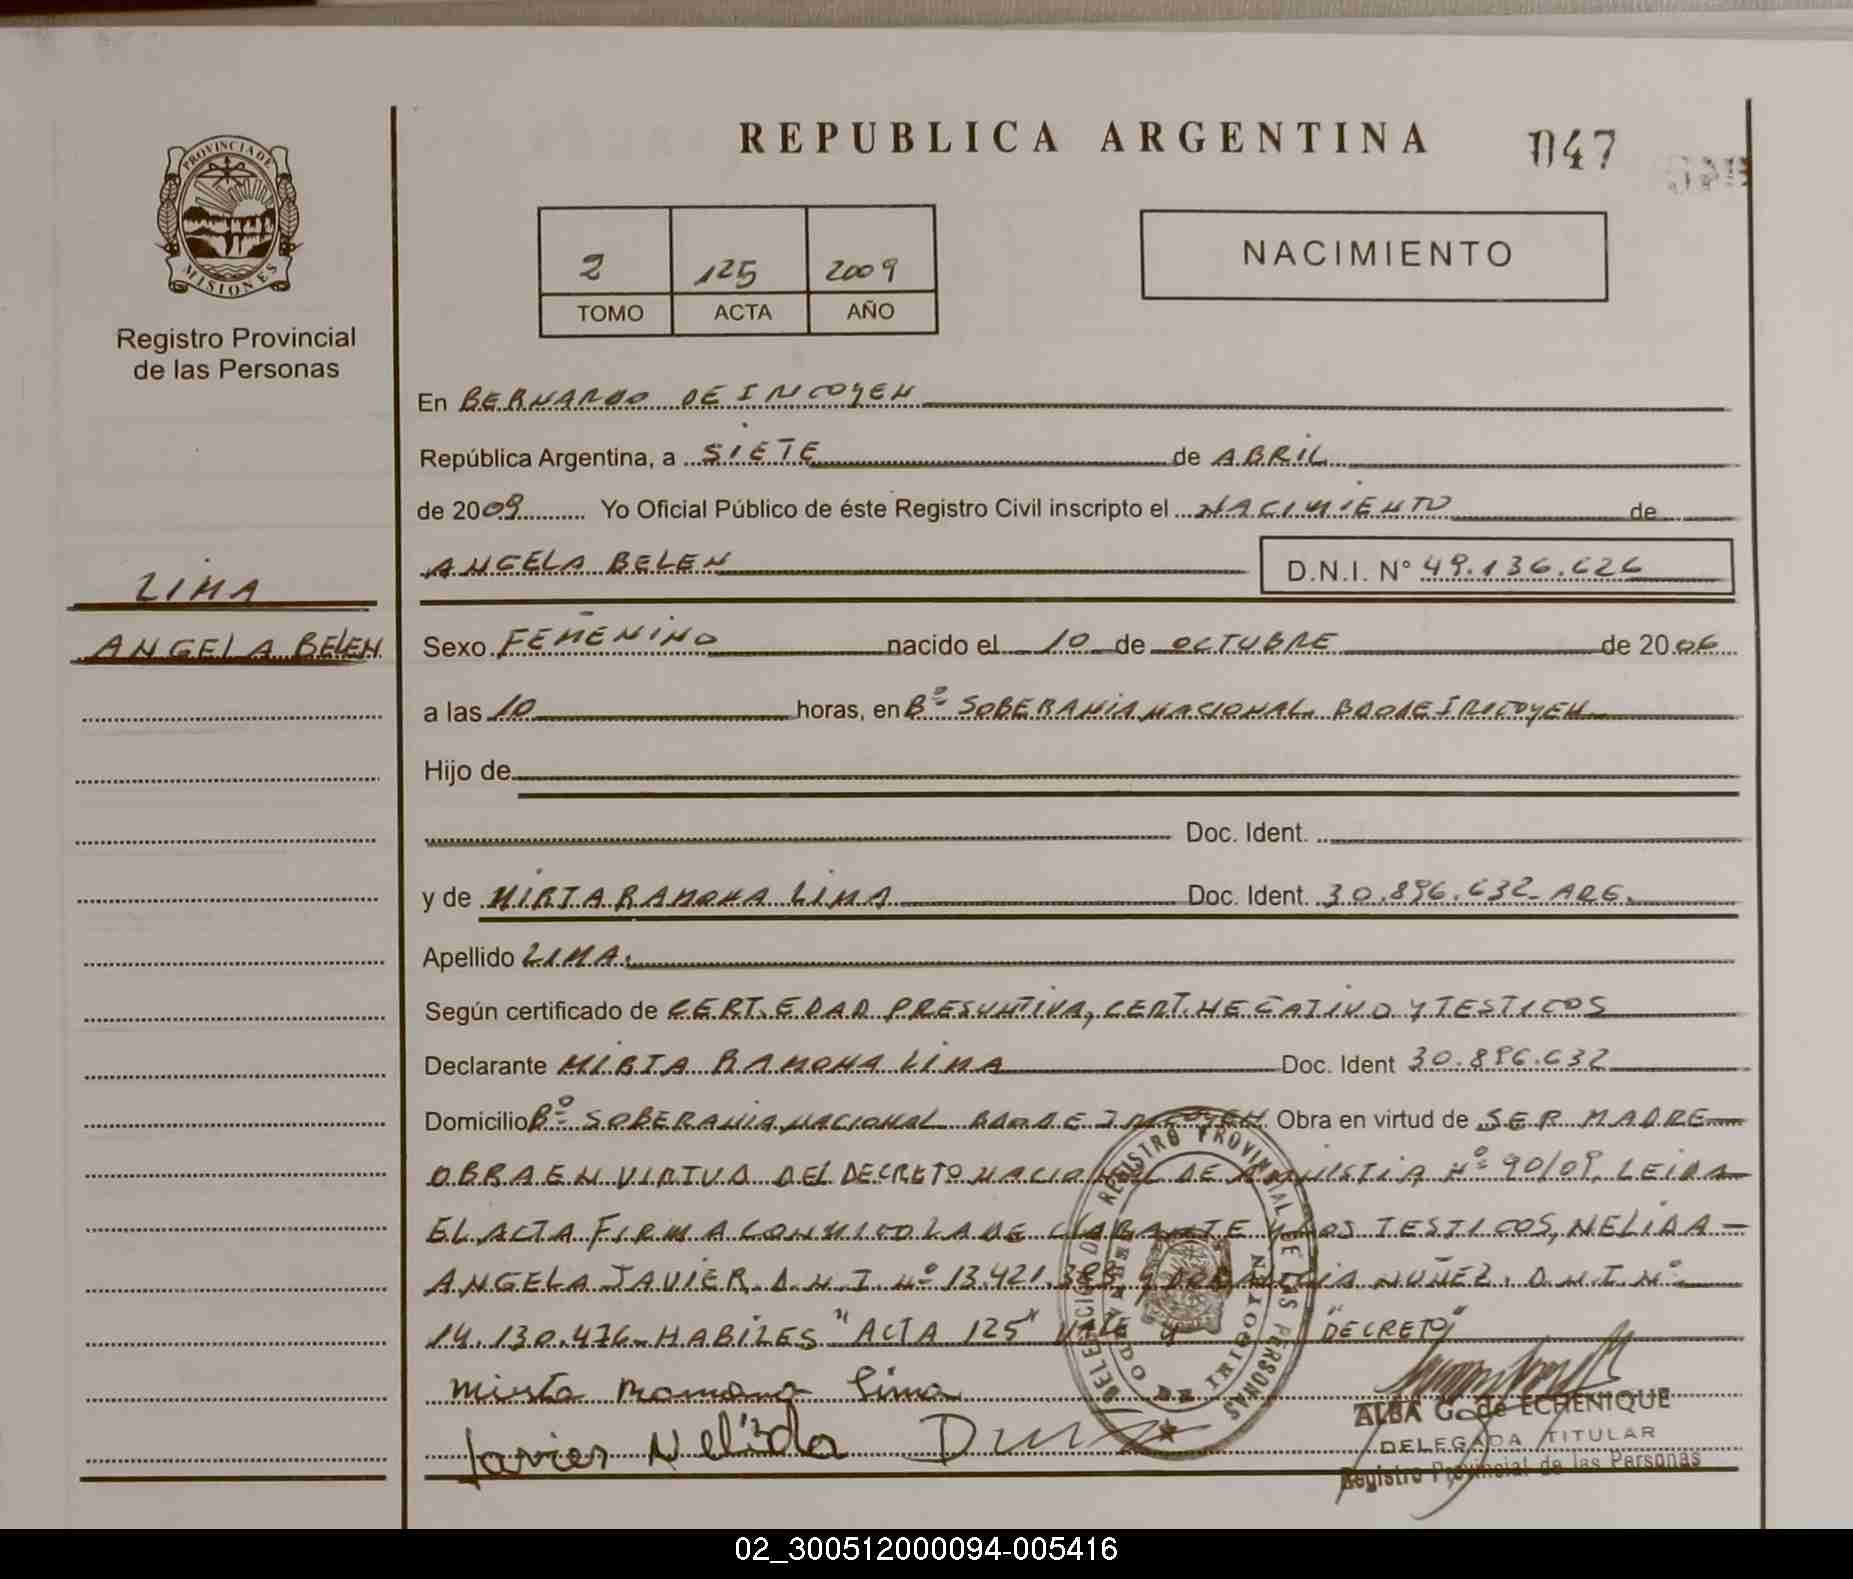 REPUBLICA ARGENTINA
047
PROVINCIA DE
MISIONES
Registro Provincial
de las Personas
2 125 2009
TOMO ACTA AÑO
NACIMIENTO
En BERNARDO DE IRIGOYEN
República Argentina, a SIETE de ABRIL
de 2009 Yo Oficial Público de éste Registro Civil inscripto el NACIMIENTO de
ANGELA BELEN D.N.I. N° 49.136.626
LIMA
ANGELA BELEN
Sexo FEMENINO nacido el 10 de OCTUBRE de 2006
a las 10 horas, en Bº SOBERANIA NACIONAL BDO DE IRIGOYEN
Hijo de
Doc. Ident.
y de MIRTA RAMONA LIMA Doc. Ident. 30.896.632- ARG.
Apellido LIMA.
Según certificado de CERT. EDAD PRESUNTIVA, CERT. NEGATIVO Y TESTIGOS
Declarante MIRTA RAMONA LIMA Doc. Ident 30.896.632
Domicilio Bº SOBERANIA NACIONAL BDO DE IRIGOYEN. Obra en virtud de SER MADRE
OBRA EN VIRTUD DEL DECRETO NACIONAL DE AMNISTIA Nº 90/09, LEIDA
EL ACTA FIRMA CONMIGO LA DECLARANTE Y LOS TESTIGOS, NELIDA
ANGELA JAVIER, D.N.I. Nº 13.421.389 Y NUÑEZ. D.N.I. Nº
14.130.476- HABILES "ACTA 125" VALE Y "DECRETO"
Mirta Ramona Lima
Javier Nelida
DELEGACION DE REGISTRO PROVINCIAL DE LAS PERSONAS
BERNARDO DE IRIGOYEN
ALBA G. de ECHENIQUE
DELEGADA TITULAR
Registro Provincial de las Personas
02_300512000094-005416